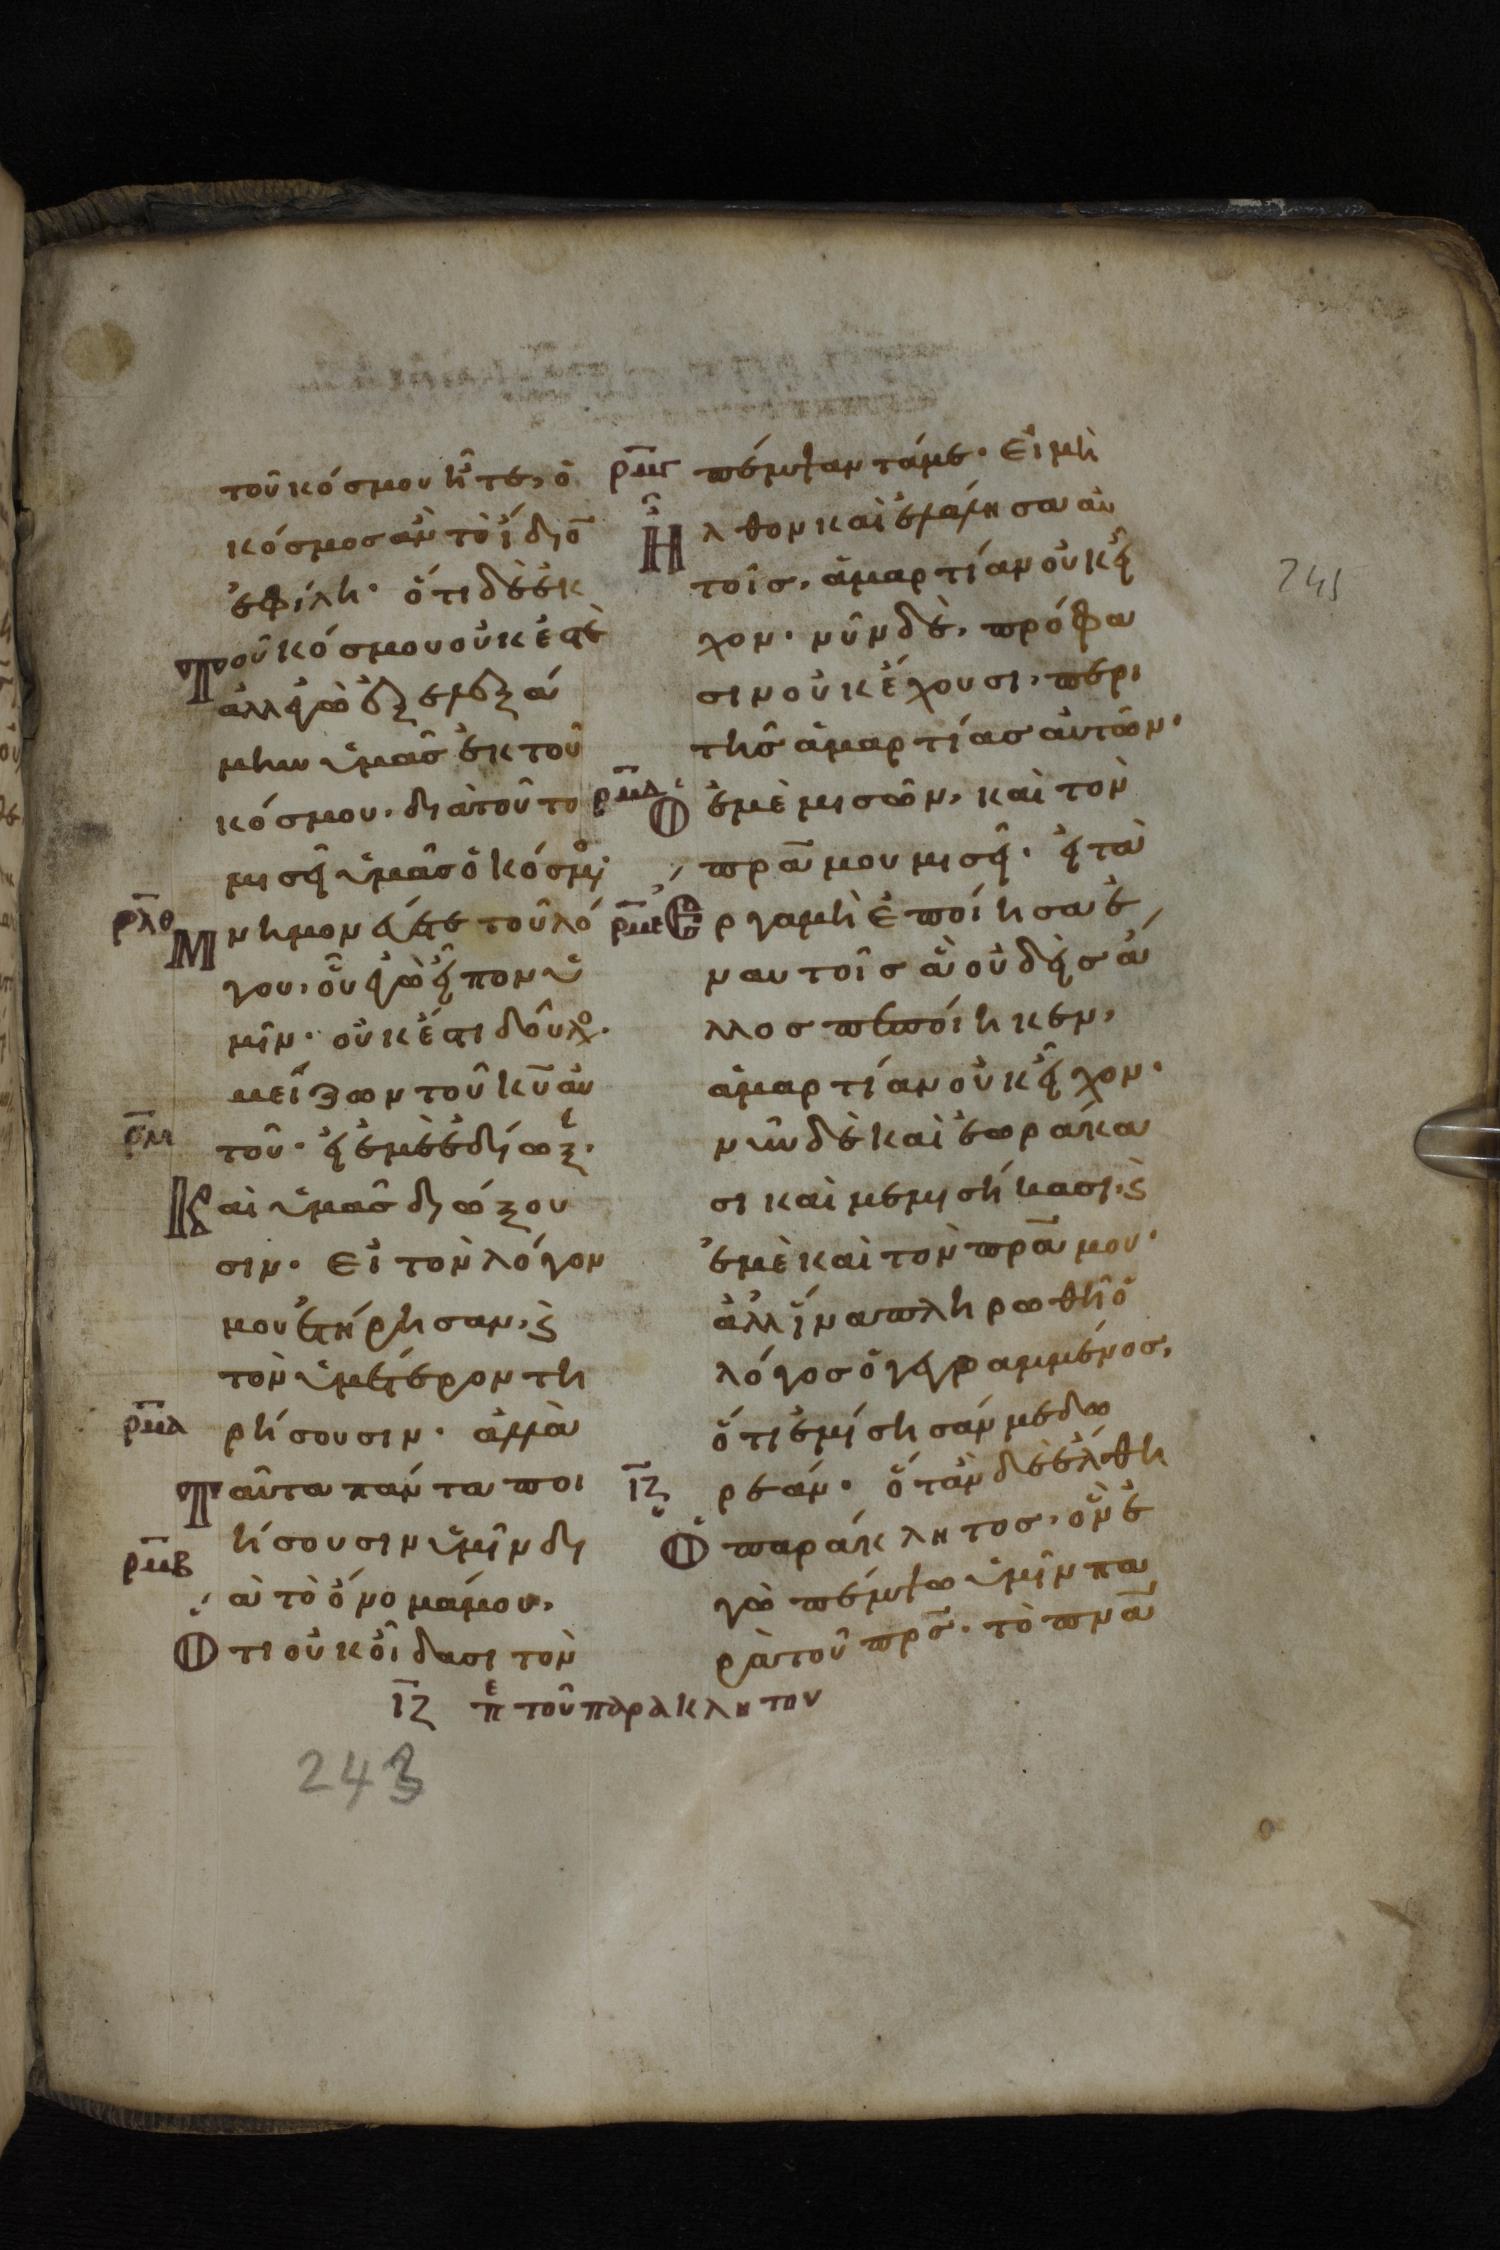 τοῦ κόσμου ἦτε, ὁ
κόσμος ἂν τὸ ἴδιο̅
ἐφίλη· ὅτι δὲ ἐκ
Τοῦ κόσμου οὐκ ἐστὲ
ἀλλ' ἐγὼ ἐξελεξά
μην ὑμᾶς ἐκ τοῦ
κόσμου· διὰ τοῦτο
μισεῖ ὑμᾶς ὁ κόσμος·
ρλθ
Μνημονεύετε τοῦ λό
γου, οὗ ἐγὼ εἶπον ὑ
μῖν· οὐκ ἔστι δοῦλος
μείζων τοῦ κ̅υ̅ αὐ
ρμ
τοῦ· εἰ ἐμὲ ἐδίωξ·
Καὶ ὑμᾶς διώξου
σιν· Εἰ τὸν λόγον
μου ἐτήρησαν, ϗ
τὸν ὑμέτερον τη
ρμα
ρήσουσιν· ἀλλὰ
Ταῦτα πάντα ποι
ήσουσιν ὑμῖν δι
ρμβ
ὰ τὸ ὄνομά μου,
Ὅτι οὐκ οἴδασι τὸν
ρμγ
πέμψαντά με· Εἰ μὴ
Ἦλθον καὶ ἐλάλησα αὐ
τοῖς, ἁμαρτίαν οὐκ εἶ
χον· νῦν δὲ, πρόφα
σιν οὐκ ἔχουσι, περι
τῆς ἁμαρτίας αὐτῶν·
ρμδ
Ὁ ἐμὲ μισῶν, καὶ τὸν
π̅ρ̅α̅ μου μισεῖ· εἰ τὰ
ρμε
Ἔργα μὴ ἐποίησα ἐ
ν αὐτοῖς ἃ οὐδεὶς ἄ
λλος πεποίηκεν,
ἁμαρτίαν οὐκ εἶχον·
νῦν δὲ καὶ ἑωράκα
σι καὶ μεμισήκασι, ϗ
ἐμὲ καὶ τὸν π̅ρ̅α̅ μου·
ἀλλ' ἵνα πληρωθῆ ὁ
λόγος ὁ γεγραμμένος,
ὅτι ἐμίσησάν με δω
ρεάν· ὅταν δὲ ἔλθη
ιζ
Ὁ παράκλητος, ὃν ἐ
γὼ πέμψω ὑμῖν πα
ρὰ τοῦ π̅ρ̅ς̅· τὸ π̅ν̅α̅
ιζ πε τοῦ παρακλητου
243
241